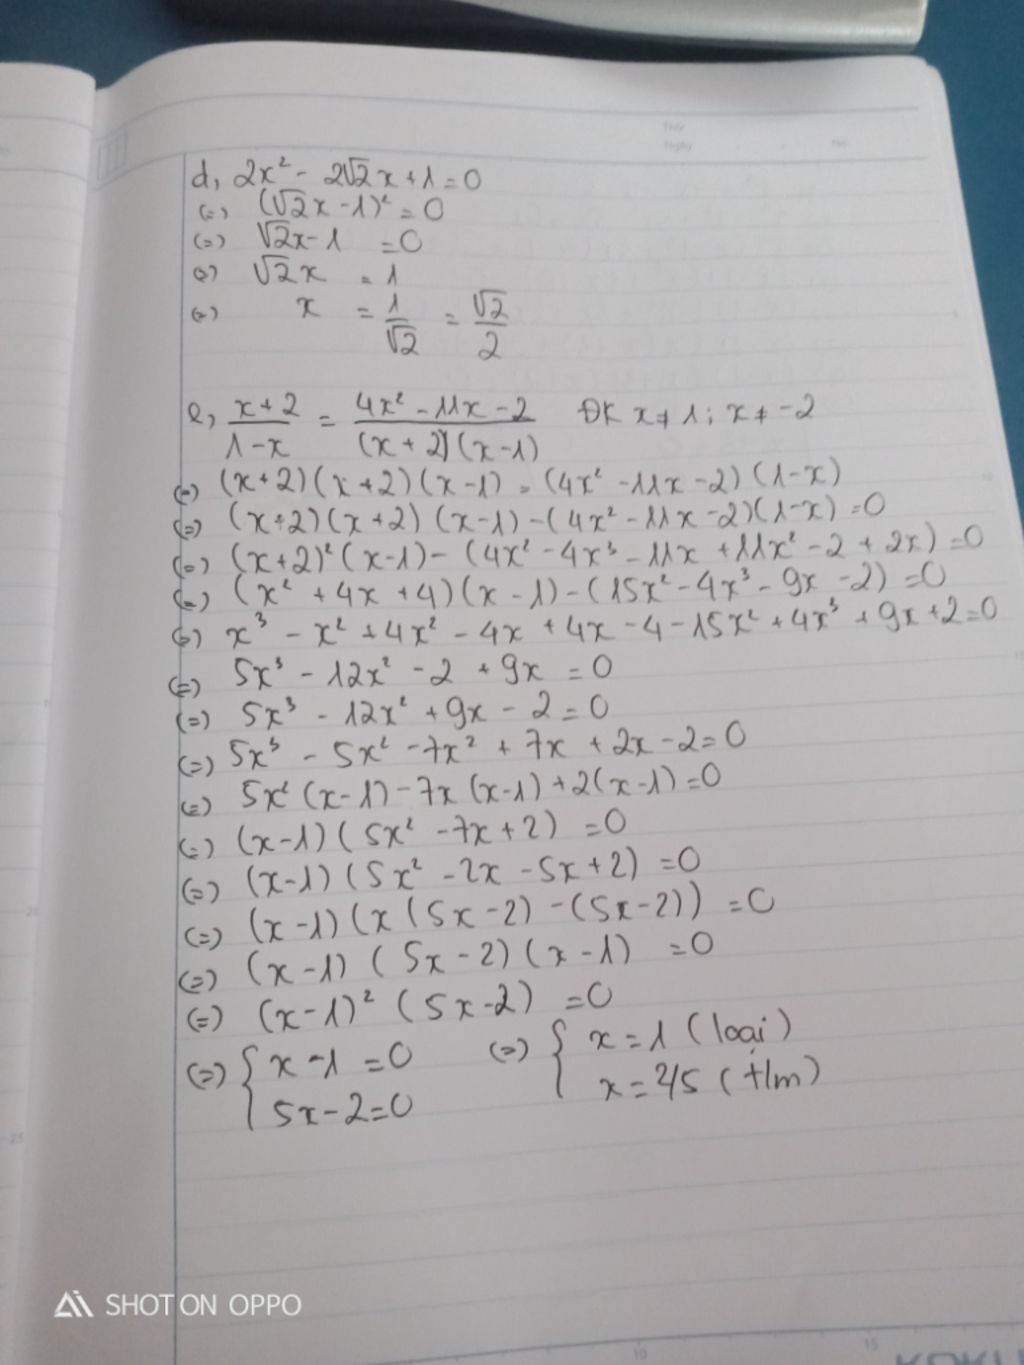 Thứ
Ngày
No.
d, 2x² - 2√2x + 1 = 0
(=) (√2x - 1)² = 0
(=) √2x - 1 = 0
(=) √2x = 1
(=) x = 1/√2 = √2/2
e, (x+2)/(1-x) = (4x² - 11x - 2)/((x+2)(x-1)) ĐK x ≠ 1; x ≠ -2
(=) (x+2)(x+2)(x-1) = (4x² - 11x - 2)(1-x)
(=) (x+2)(x+2)(x-1) - (4x² - 11x - 2)(1-x) = 0
(=) (x+2)²(x-1) - (4x² - 4x³ - 11x + 11x² - 2 + 2x) = 0
(=) (x² + 4x + 4)(x - 1) - (15x² - 4x³ - 9x - 2) = 0
(=) x³ - x² + 4x² - 4x + 4x - 4 - 15x² + 4x³ + 9x + 2 = 0
(=) 5x³ - 12x² - 2 + 9x = 0
(=) 5x³ - 12x² + 9x - 2 = 0
(=) 5x³ - 5x² - 7x² + 7x + 2x - 2 = 0
(=) 5x²(x-1) - 7x(x-1) + 2(x-1) = 0
(=) (x-1)(5x² - 7x + 2) = 0
(=) (x-1)(5x² - 2x - 5x + 2) = 0
(=) (x-1)(x(5x-2) - (5x-2)) = 0
(=) (x-1)(5x-2)(x-1) = 0
(=) (x-1)²(5x-2) = 0
(=) { x - 1 = 0 (=) { x = 1 (loại)
5x - 2 = 0 x = 2/5 (t/m)
SHOT ON OPPO
10
15